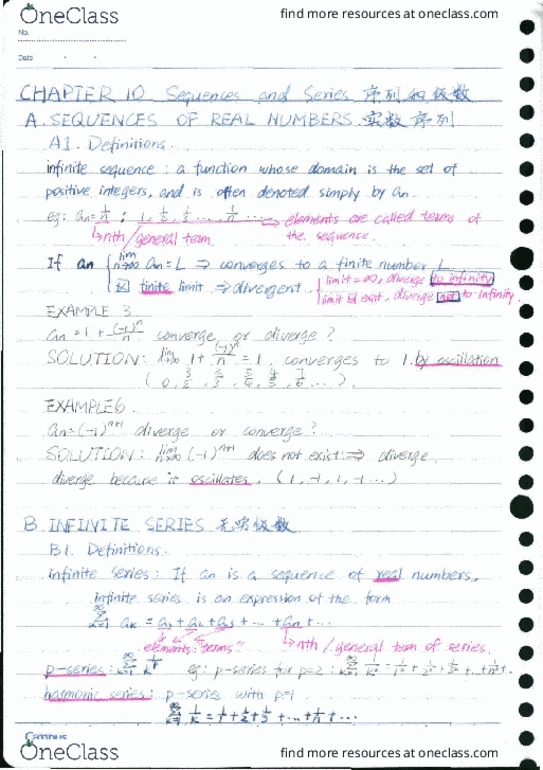 OneClass
find more resources at oneclass.com
No.
Date
CHAPTER 10 Sequences and Series 序列和级数
A. SEQUENCES OF REAL NUMBERS 实数序列
A1. Definitions.
infinite sequence : a function whose domain is the set of
positive integers, and is often denoted simply by an.
eg: an = 1/n ; 1, 1/2, 1/3 ..., 1/n ... → elements are called terms of
the sequence.
↳ nth/general term
If an { lim n→∞ an = L ⇒ converges to a finite number L
finite limit ⇒ divergent { limit = ∞, diverge to infinity
exist, diverge not to infinity.
EXAMPLE 3
an = 1 + (-1)^n/n converge or diverge ?
SOLUTION: lim n→∞ 1 + (-1)^n/n = 1, converges to 1. by oscillation
( 0, 3/2, 2/3, 5/4, 4/5, 7/6 ... ).
EXAMPLE 6
an = (-1)^n+1 diverge or converge ?
SOLUTION: lim n→∞ (-1)^n+1 does not exist ⇒ diverge.
diverge because it oscillates, (1, -1, 1, -1 ...)
B. INFINITE SERIES 无穷级数
B1. Definitions.
infinite series: If an is a sequence of real numbers,
infinite series is an expression of the form
∞Σk=1 ak = a1 + a2 + a3 + ... + an + ...
elements "terms" ↳ nth/general term of series.
p-series: ∞Σk=1 1/k^p eg: p-series for p=2 : ∞Σk=1 1/k² = 1/1² + 1/2² + 1/3² + ... + 1/n² + ..
harmonic series: p-series with p=1
∞Σk=1 1/k = 1/1 + 1/2 + 1/3 + ... + 1/n + ...
Campus
OneClass
find more resources at oneclass.com